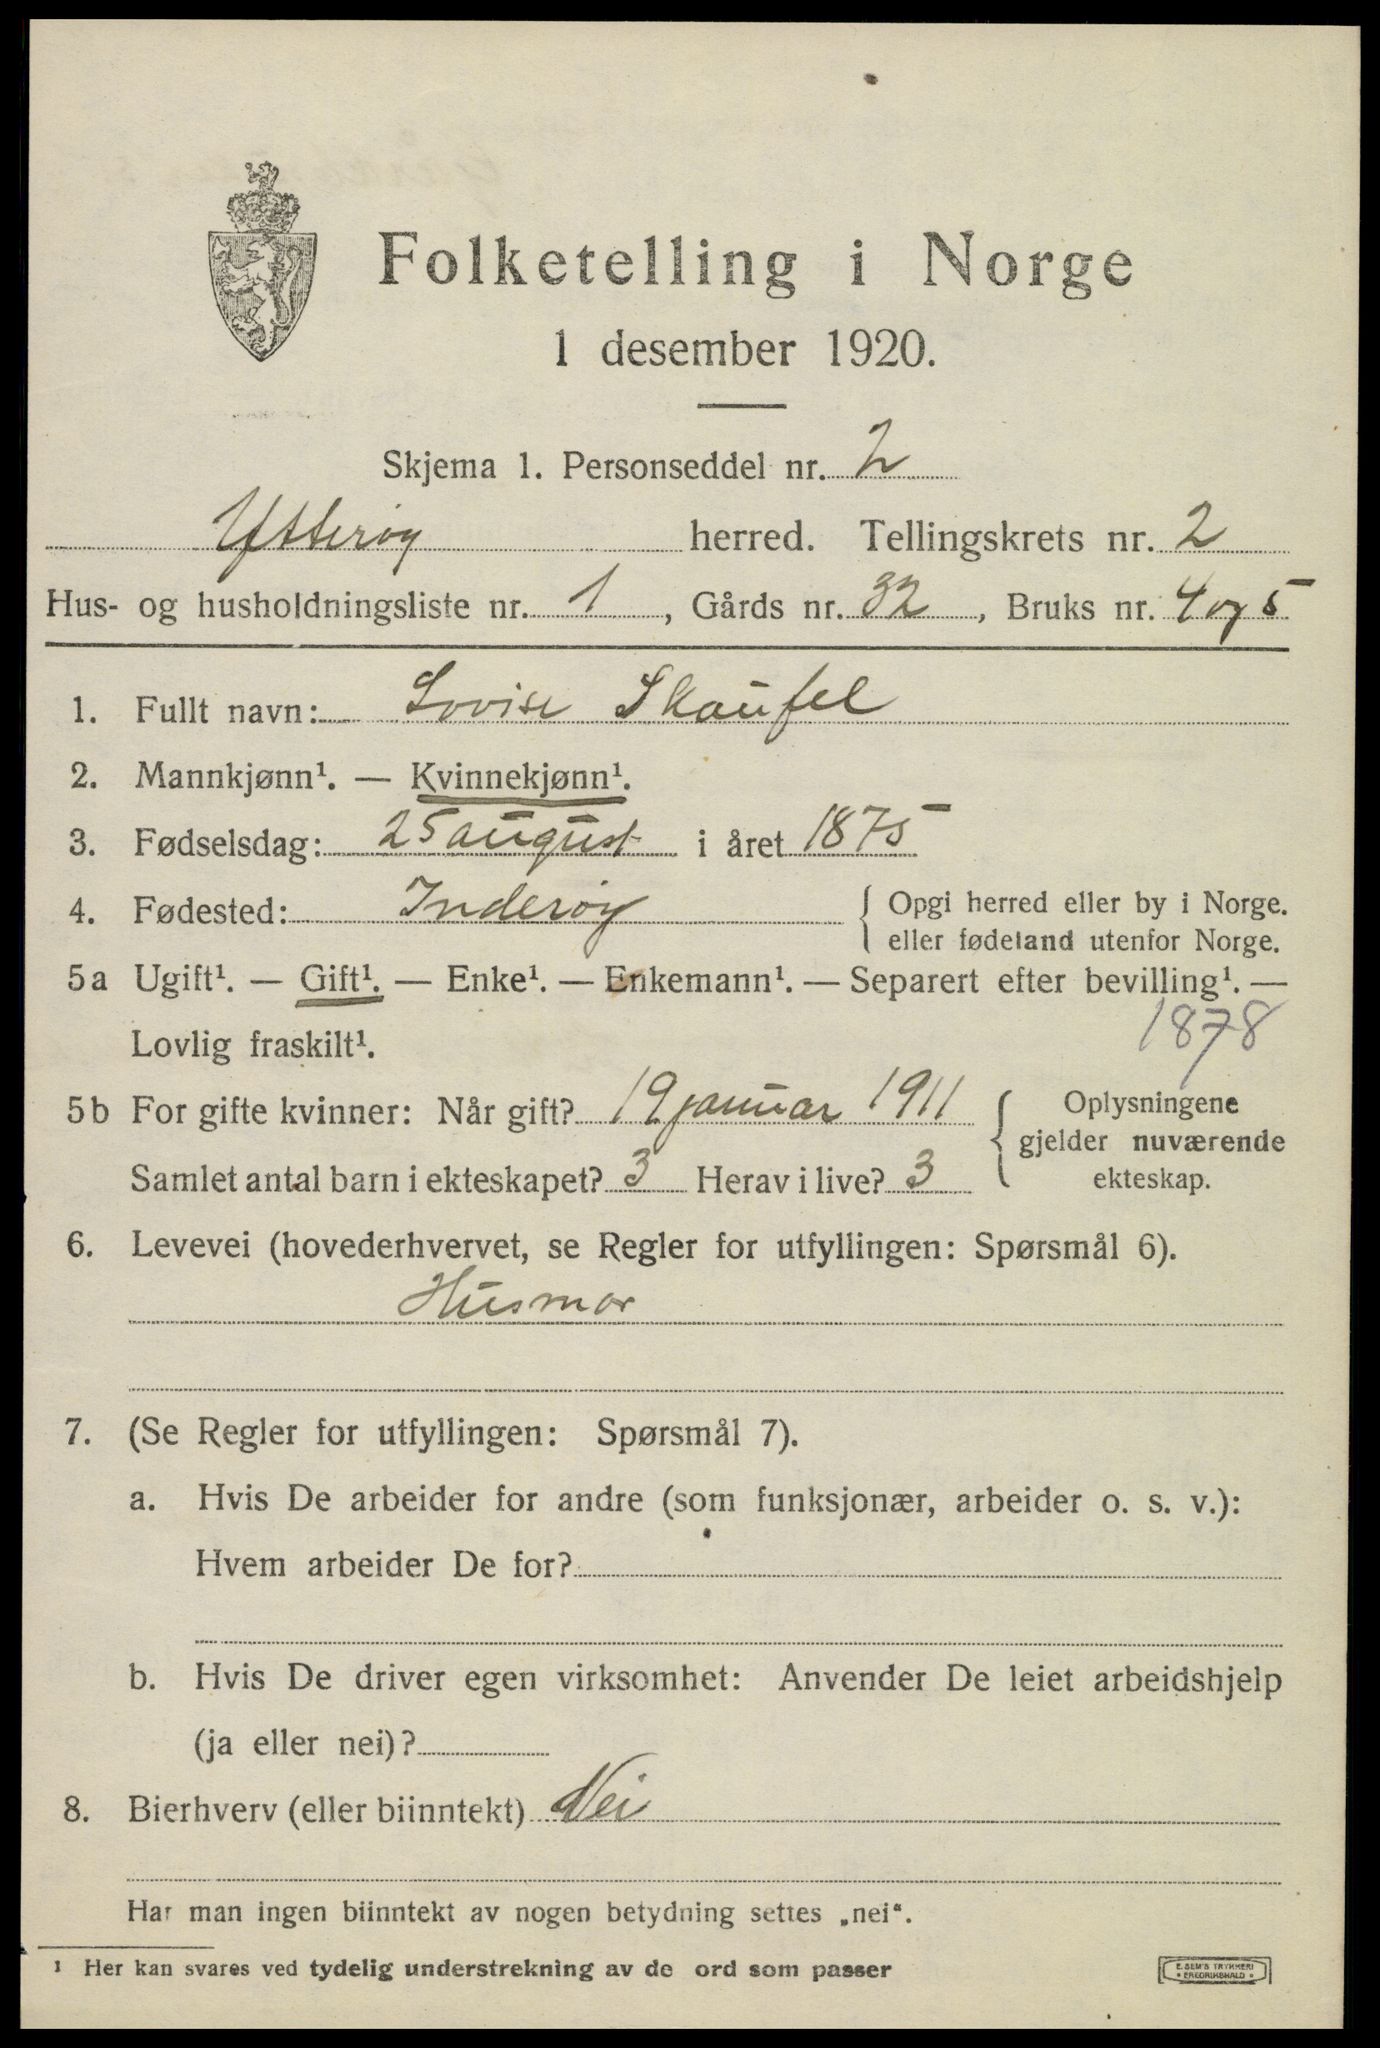 Folketelling i Norge
1 desember 1920.
Skjema 1. Personseddel nr. 2
Ytterøy herred. Tellingskrets nr. 2
Hus- og husholdningsliste nr. 1, Gårds nr. 32, Bruks nr. 4 og 5
1. Fullt navn: Lovise Skaufel
2. Mannkjønn¹. — Kvinnekjønn¹.
3. Fødselsdag: 25 august i året 1875
4. Fødested: Inderøy { Opgi herred eller by i Norge.
eller fødeland utenfor Norge.
5a Ugift¹. — Gift¹. — Enke¹. — Enkemann¹. — Separert efter bevilling¹. —
Lovlig fraskilt¹. 1878
5b For gifte kvinner: Når gift? 19 januar 1911 { Oplysningene
gjelder nuværende
Samlet antal barn i ekteskapet? 3 Herav i live? 3 ekteskap.
6. Levevei (hovederhvervet, se Regler for utfyllingen: Spørsmål 6).
Husmor
7. (Se Regler for utfyllingen: Spørsmål 7).
a. Hvis De arbeider for andre (som funksjonær, arbeider o. s. v.):
Hvem arbeider De for?
b. Hvis De driver egen virksomhet: Anvender De leiet arbeidshjelp
(ja eller nei)?
8. Bierhverv (eller biinntekt) Nei
Har man ingen biinntekt av nogen betydning settes „nei“.
¹ Her kan svares ved tydelig understrekning av de ord som passer
E. SEM'S TRYKKERI
• FREDRIKSHALD •